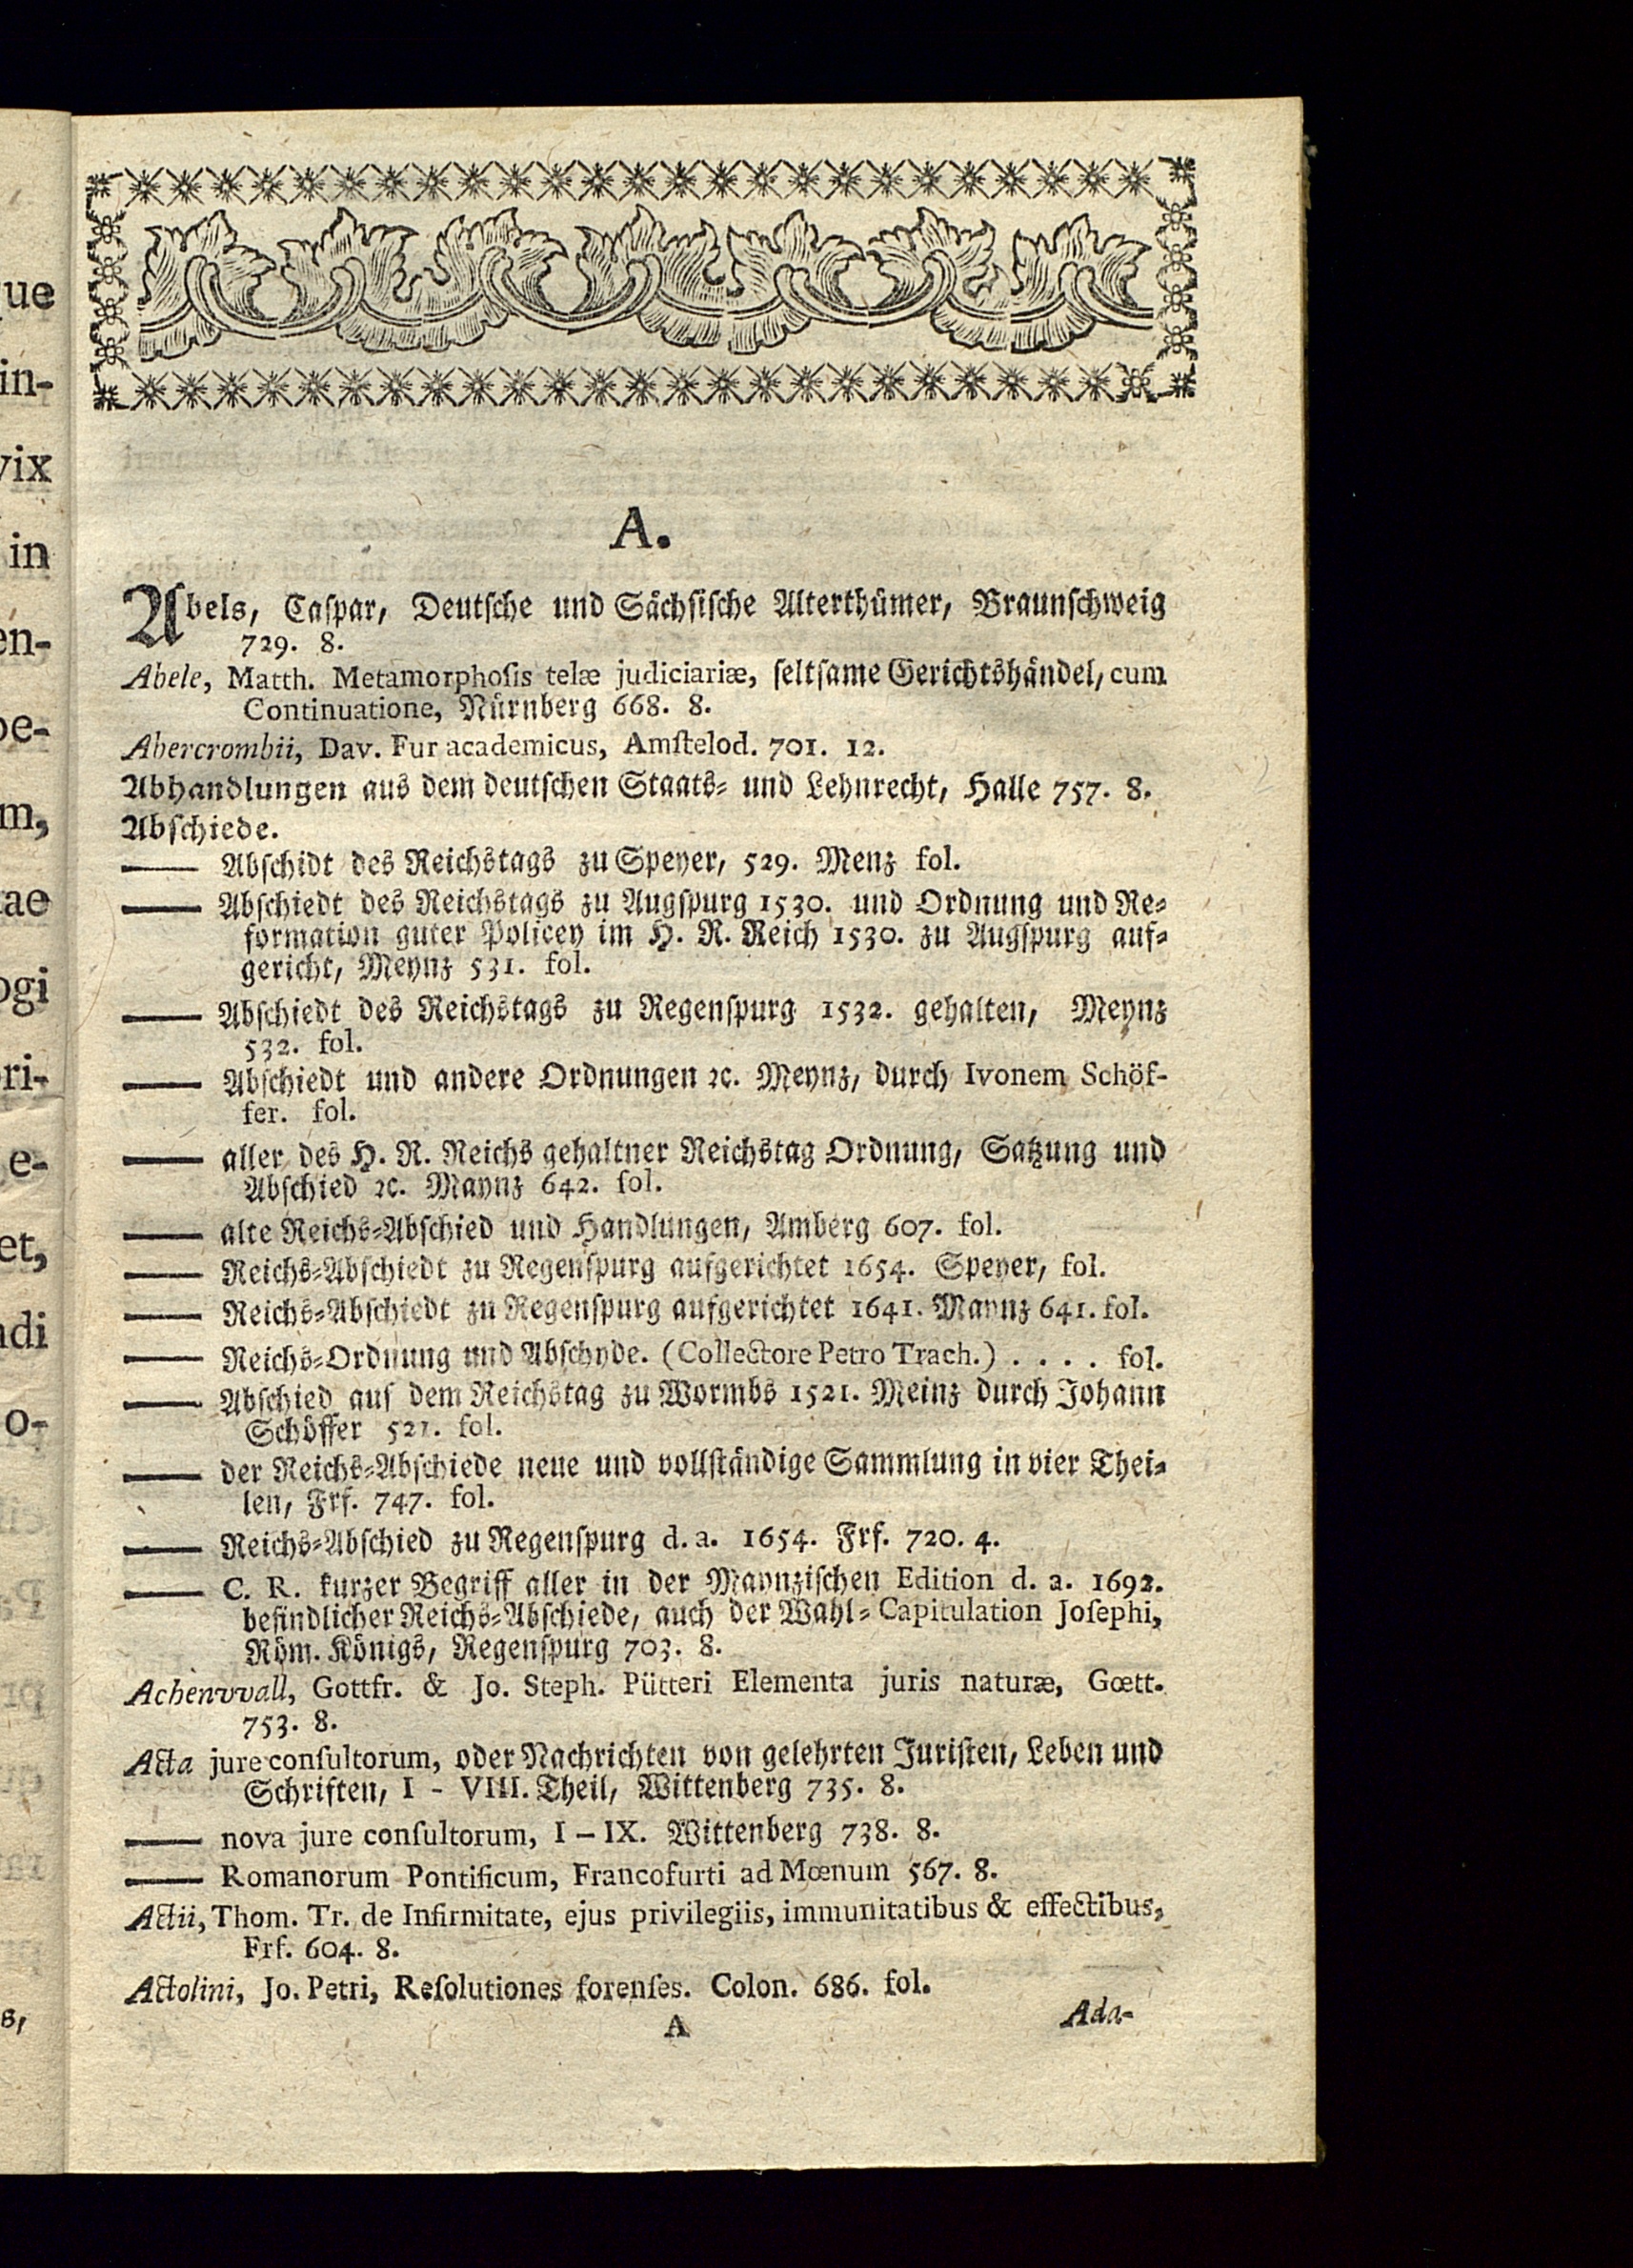 A.
Abels, Caspar, Deutsche und Sächsische Alterthümer, Braunschweig
729. 8.
Abele, Matth. Metamorphoſis telæ judiciariæ, ſeltſame Gerichtshändel, cum
Continuatione, Nürnberg 668. 8.
Abercrombii, Dav. Fur academicus, Amſtelod. 701. 12.
Abhandlungen aus dem deutſchen Staats- und Lehnrecht, Halle 757. 8.
Abſchiede.
—— Abſchidt des Reichstags zu Speyer, 529. Menz fol.
—— Abſchiedt des Reichstags zu Augſpurg 1530. und Ordnung und Re-
formation guter Policey im H. R. Reich 1530. zu Augſpurg auf-
gericht, Meynz 531. fol.
—— Abſchiedt des Reichstags zu Regenſpurg 1532. gehalten, Meynz
532. fol.
—— Abſchiedt und andere Ordnungen ꝛc. Meynz, durch Ivonem Schöf-
fer. fol.
—— aller des H. R. Reichs gehaltner Reichstag Ordnung, Satzung und
Abſchied ꝛc. Maynz 642. fol.
—— alte Reichs-Abſchied und Handlungen, Amberg 607. fol.
—— Reichs-Abſchiedt zu Regenſpurg aufgerichtet 1654. Speyer, fol.
—— Reichs-Abſchiedt zu Regenſpurg aufgerichtet 1641. Maynz 641. fol.
—— Reichs-Ordnung und Abſchyde. (Collectore Petro Trach.) . . . . fol.
—— Abſchied auf dem Reichstag zu Wormbs 1521. Meinz durch Johann
Schöffer 521. fol.
—— der Reichs-Abſchiede neue und vollſtändige Sammlung in vier Thei-
len, Frf. 747. fol.
—— Reichs-Abſchied zu Regenſpurg d. a. 1654. Frf. 720. 4.
—— C. R. kurzer Begriff aller in der Maynziſchen Edition d. a. 1692.
befindlicher Reichs-Abſchiede, auch der Wahl-Capitulation Joſephi,
Röm. Königs, Regenſpurg 703. 8.
Achenvvall, Gottfr. & Jo. Steph. Pütteri Elementa juris naturæ, Gœtt.
753. 8.
Acta jure conſultorum, oder Nachrichten von gelehrten Juriſten, Leben und
Schriften, I - VIII. Theil, Wittenberg 735. 8.
—— nova jure conſultorum, I – IX. Wittenberg 738. 8.
—— Romanorum Pontificum, Francofurti ad Mœnum 567. 8.
Actii, Thom. Tr. de Infirmitate, ejus privilegiis, immunitatibus & effectibus,
Frf. 604. 8.
Actolini, Jo. Petri, Reſolutiones forenſes. Colon. 686. fol.
A
Ada-